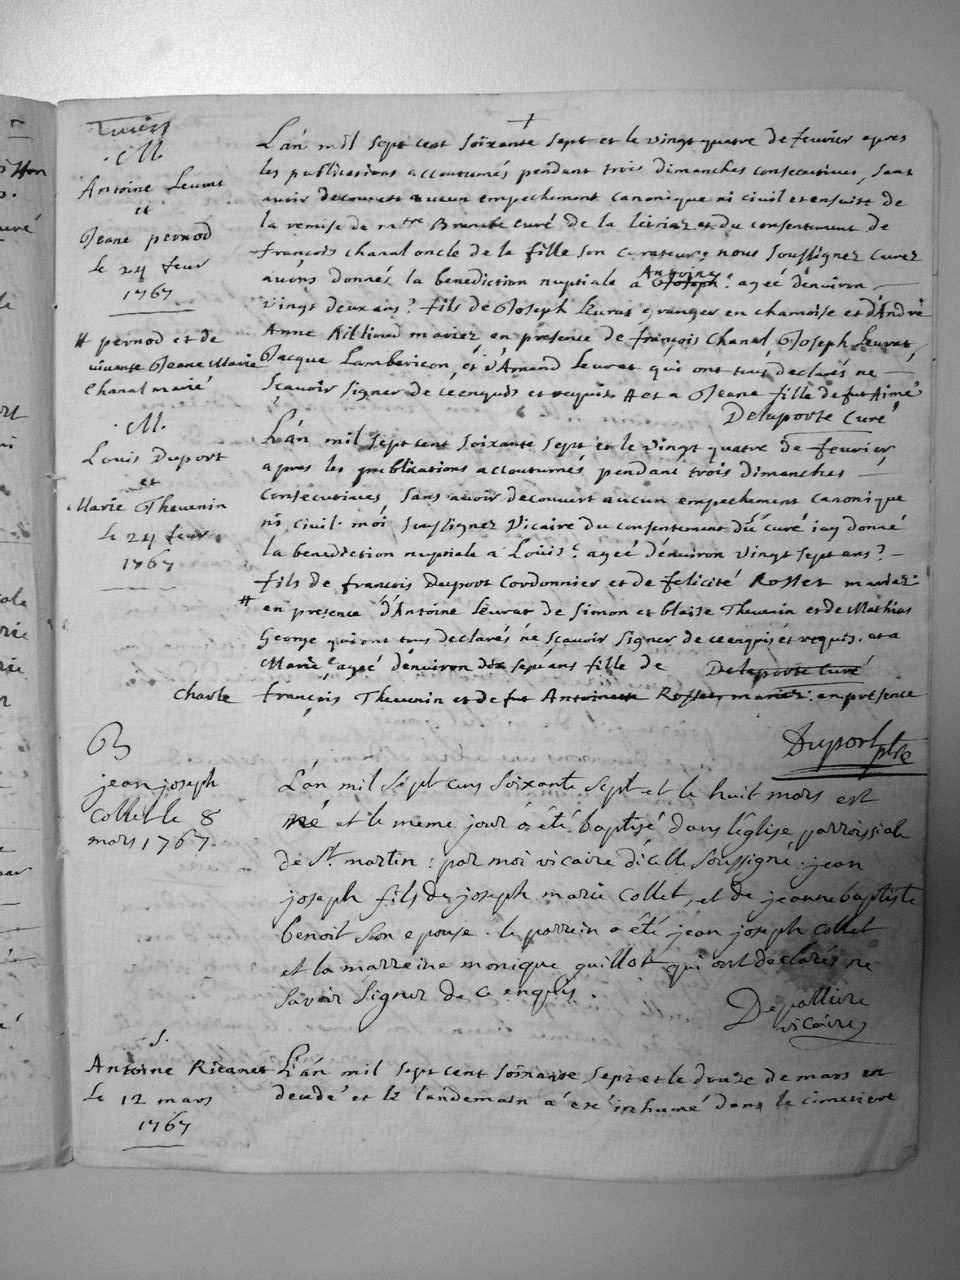 M.
Antoine Leurat
et
Jeane pernod
le 24 feur
1767
# pernod et de
vivante Jeane Marie
Chanal marié
L'án mil sept cent soixante sept et le vingt quatre de feurier apres
les publications accoutumés pendant trois dimanches consecutives, sans
avoir decouvert aucun empechement canonique ni civil et ensuite de
la remise de mtre curé de la et du consentement de
françois chanal oncle de la fille son curateur: nous soussignez curez
avons donnés la benediction nuptiale a Antoine: ageé d'environ
vingt deux ans? fils de Joseph Leurat granger en chamoise et d'André
Anne mariez en présence de françois Chanal Joseph Leurat
Jacque Lambericon, et d'Amand Leurat qui ont tous declarés ne
sçavoir signer de ce enquis et requis # et a Jeane fille de fut Aimé
Delaporte Curé
M.
Louis Duport
et
Marie Thevenin
le 24 feur
1767
L'án mil sept cent soixante sept et le vingt quatre de feurier
apres les publications accoutumés pendant trois dimanches
consécutives sans avoir decouvert aucun empechement canonique
ni civil. moi soussignez Vicaire du consentement du curé i'ay donné
la benediction nuptiale a Louis: ageé d'environ vingt sept ans?
fils de françois Duport Cordonnier et de felicité Rosset mariez:
# en presence d'Antoine Leurat de Simon et blaise Thevenin et de Mathias
George qui ont tous declarés ne sçavoir signer de ce enquis et requis. et a
Marie ageé d'environ dix sept ans fille de Delaporte Curé
Charle françois Thevenin et de fut Antoinette Rosset, mariez: en présence
Duport ptre
B
jean joseph
Collet le 8
mars 1767.
L'án mil sépt cens soixante sept et le huit mars est
né et le meme jour a été baptisé dans l'église parroissiale
de St. martin: par moi vicaire d'icelle soussigné. jean
joseph fils de joseph marie Collet, et de jeanne baptiste
benoit son epouse. le parrein a été jean joseph Collet
et la marreine monique guillot qui ont declarés ne
savoir signer de ce enquis.
Depallière
vicaire
S.
Antoine Ricanet
le 12 mars
1767
L'án mil sept cent soixante sept et le douze de mars est
decedé et le landemain a été inhumé dans le cimetiere